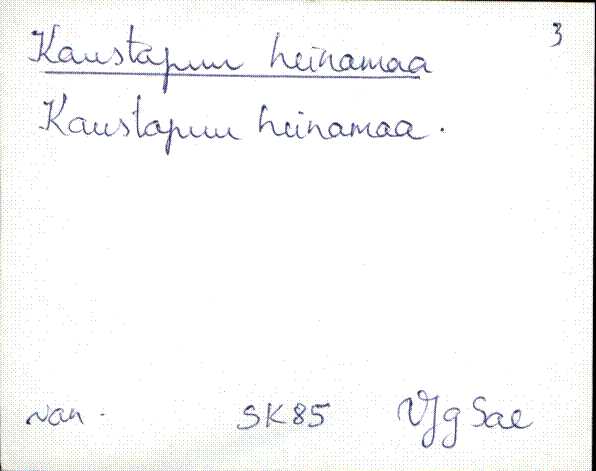 3
Kaustapuu heinamaa
Kaustapuu heinamaa.
van.
SK85
VJg Sae